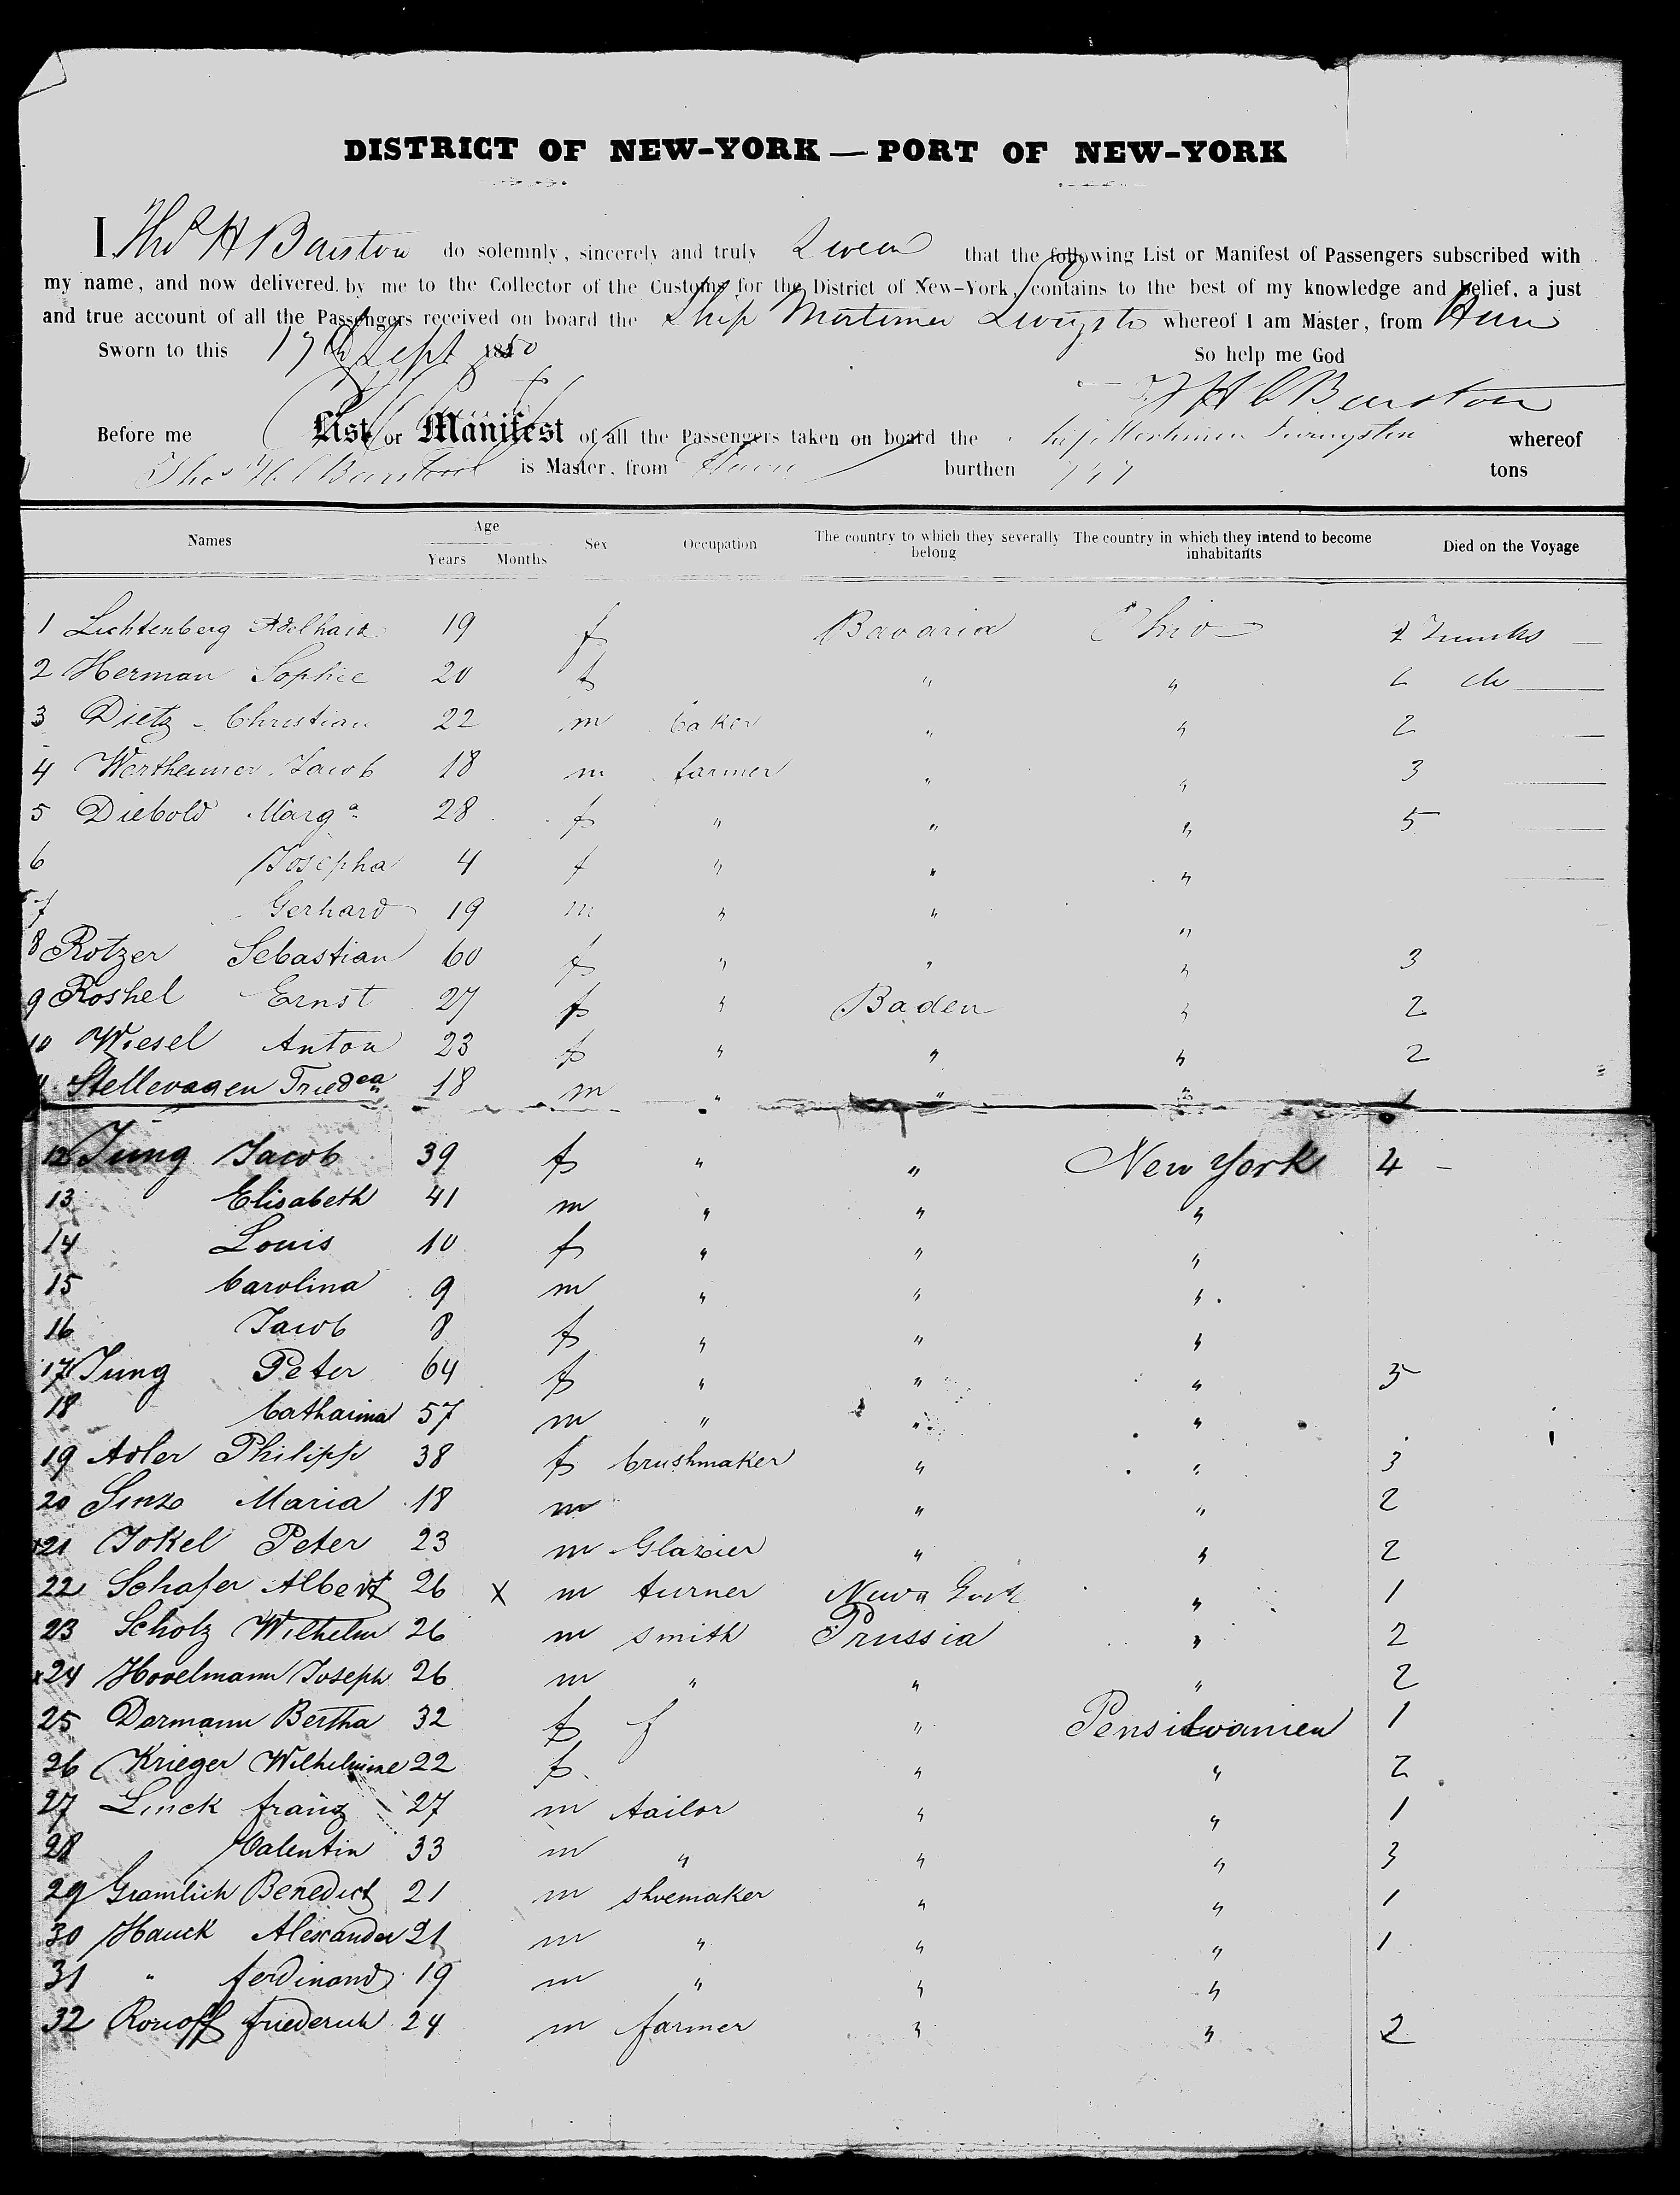 DISTRICT OF NEW-YORK — PORT OF NEW-YORK
I, Thos H Barstow do solemnly, sincerely and truly Swear that the following List or Manifest of Passengers subscribed with
my name, and now delivered by me to the Collector of the Customs for the District of New-York, contains to the best of my knowledge and belief, a just
and true account of all the Passengers received on board the Ship Mortimer Livingston whereof I am Master, from
Sworn to this 17th Sept 1850 So help me God
Barstow
Before me List or Manifest of all the Passengers taken on board the Ship Mortimer Livingston whereof
Thos H C Barstow is Master, from burthen tons
Names Age Years Months Sex Occupation The country to which they severally belong The country in which they intend to become inhabitants Died on the Voyage
1 Lichtenberg Adelhaid 19 f Bavaria Ohio 2 Trunks
2 Herman Sophie 20 f " " 2 do
3 Dietz - Christian 22 m baker " " 2
4 Wertheimer Jacob 18 m farmer " " 3
5 Diebold Marga 28 f " " " 5
6 Josepha 4 f " " "
7 Gerhard 19 m " " "
8 Rotzer Sebastian 60 f " " " 3
9 Roshel Ernst 27 f " Baden " 2
10 Wiesel Anton 23 f " " " 2
11 Stellevagen Friedea 18 m " " " 1
12 Jung Jacob 39 f " " New York 4 -
13 Elisabeth 41 m " " "
14 Louis 10 f " " "
15 Carolina 9 m " " "
16 Jacob 8 f " " "
17 Jung Peter 64 f " " " 5
18 Catharina 57 m " " "
19 Adler Philipp 38 f brushmaker " " 3
20 Sinz Maria 18 m " " 2
x21 Jokel Peter 23 m Glazier " " 2
22 Schafer Albert 26 X m turner " 1
23 Scholz Wilhelm 26 m smith Prussia " 2
x24 Hovelmann Joseph 26 m " " " 2
25 Darmann Bertha 32 f f " Pensilvanien 1
26 Krieger Wilhelmine 22 f " " 2
27 Linck franz 27 m tailor " " 1
28 Valentin 33 m " " " 3
29 Gramlich Benedict 21 m shoemaker " " 1
30 Hauck Alexander 21 m " " " 1
31 " ferdinand 19 m " " "
32 Ronoff friederich 24 m farmer " " 2